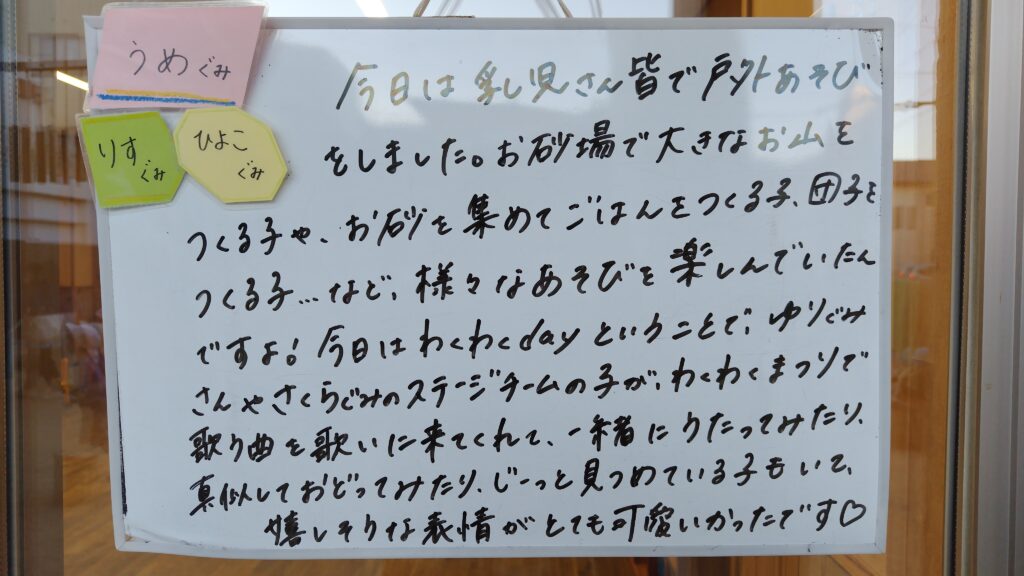 うめぐみ
りすぐみ
ひよこぐみ
今日は乳児さん皆で戸外あそび
をしました。お砂場で大きなお山を
つくる子や、お砂を集めてごはんをつくる子、団子を
つくる子…など、様々なあそびを楽しんでいたん
ですよ！今日はわくわくdayということで、ゆりぐみ
さんやさくらぐみのステージチームの子が、わくわくまつりで
歌う曲を歌いに来てくれて、一緒にうたってみたり、
真似しておどってみたり、じーっと見つめている子もいて、
嬉しそうな表情がとても可愛いかったです♡